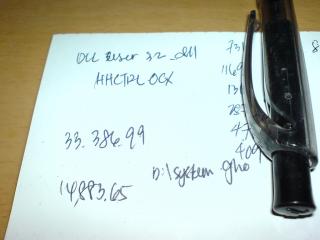 DLL User 32_dll
HHCTRL OCX
33.386.99
D:\system.gho
14,883.65
731
1169
131
287
47
409
8